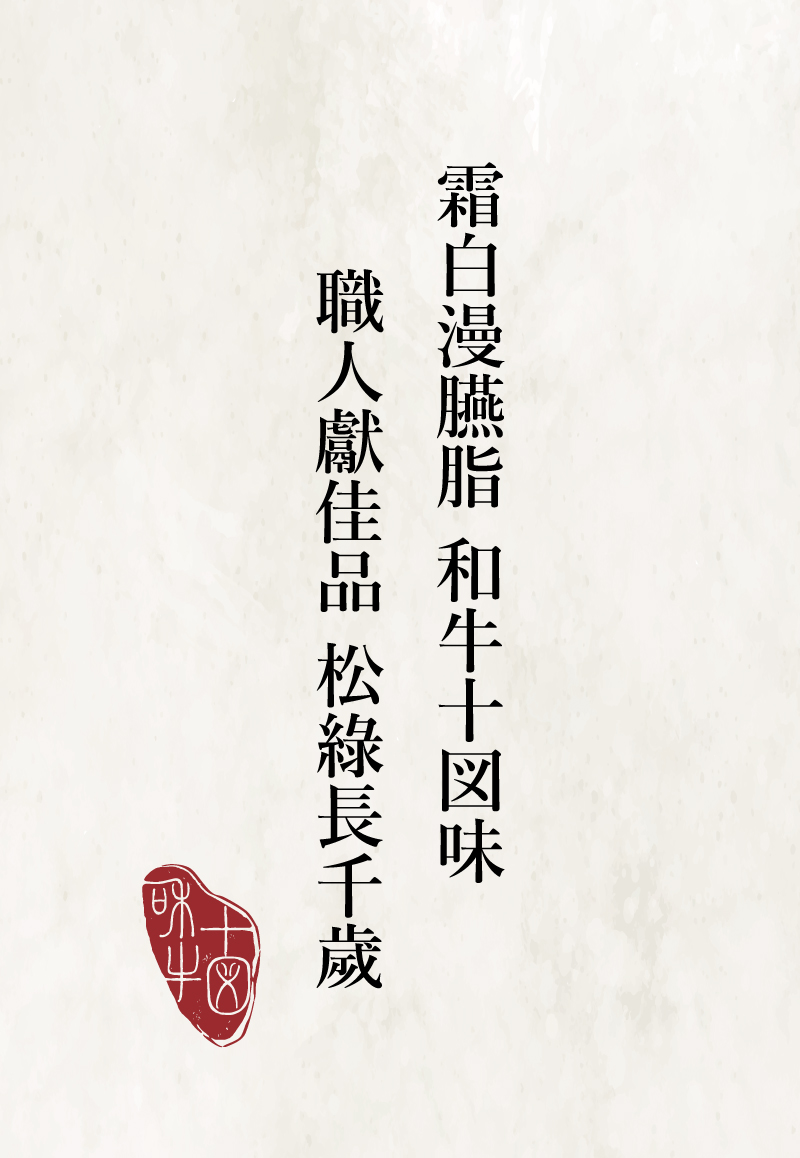 霜白漫臙脂 和牛十図味
職人獻佳品 松綠長千歲
十図
和牛